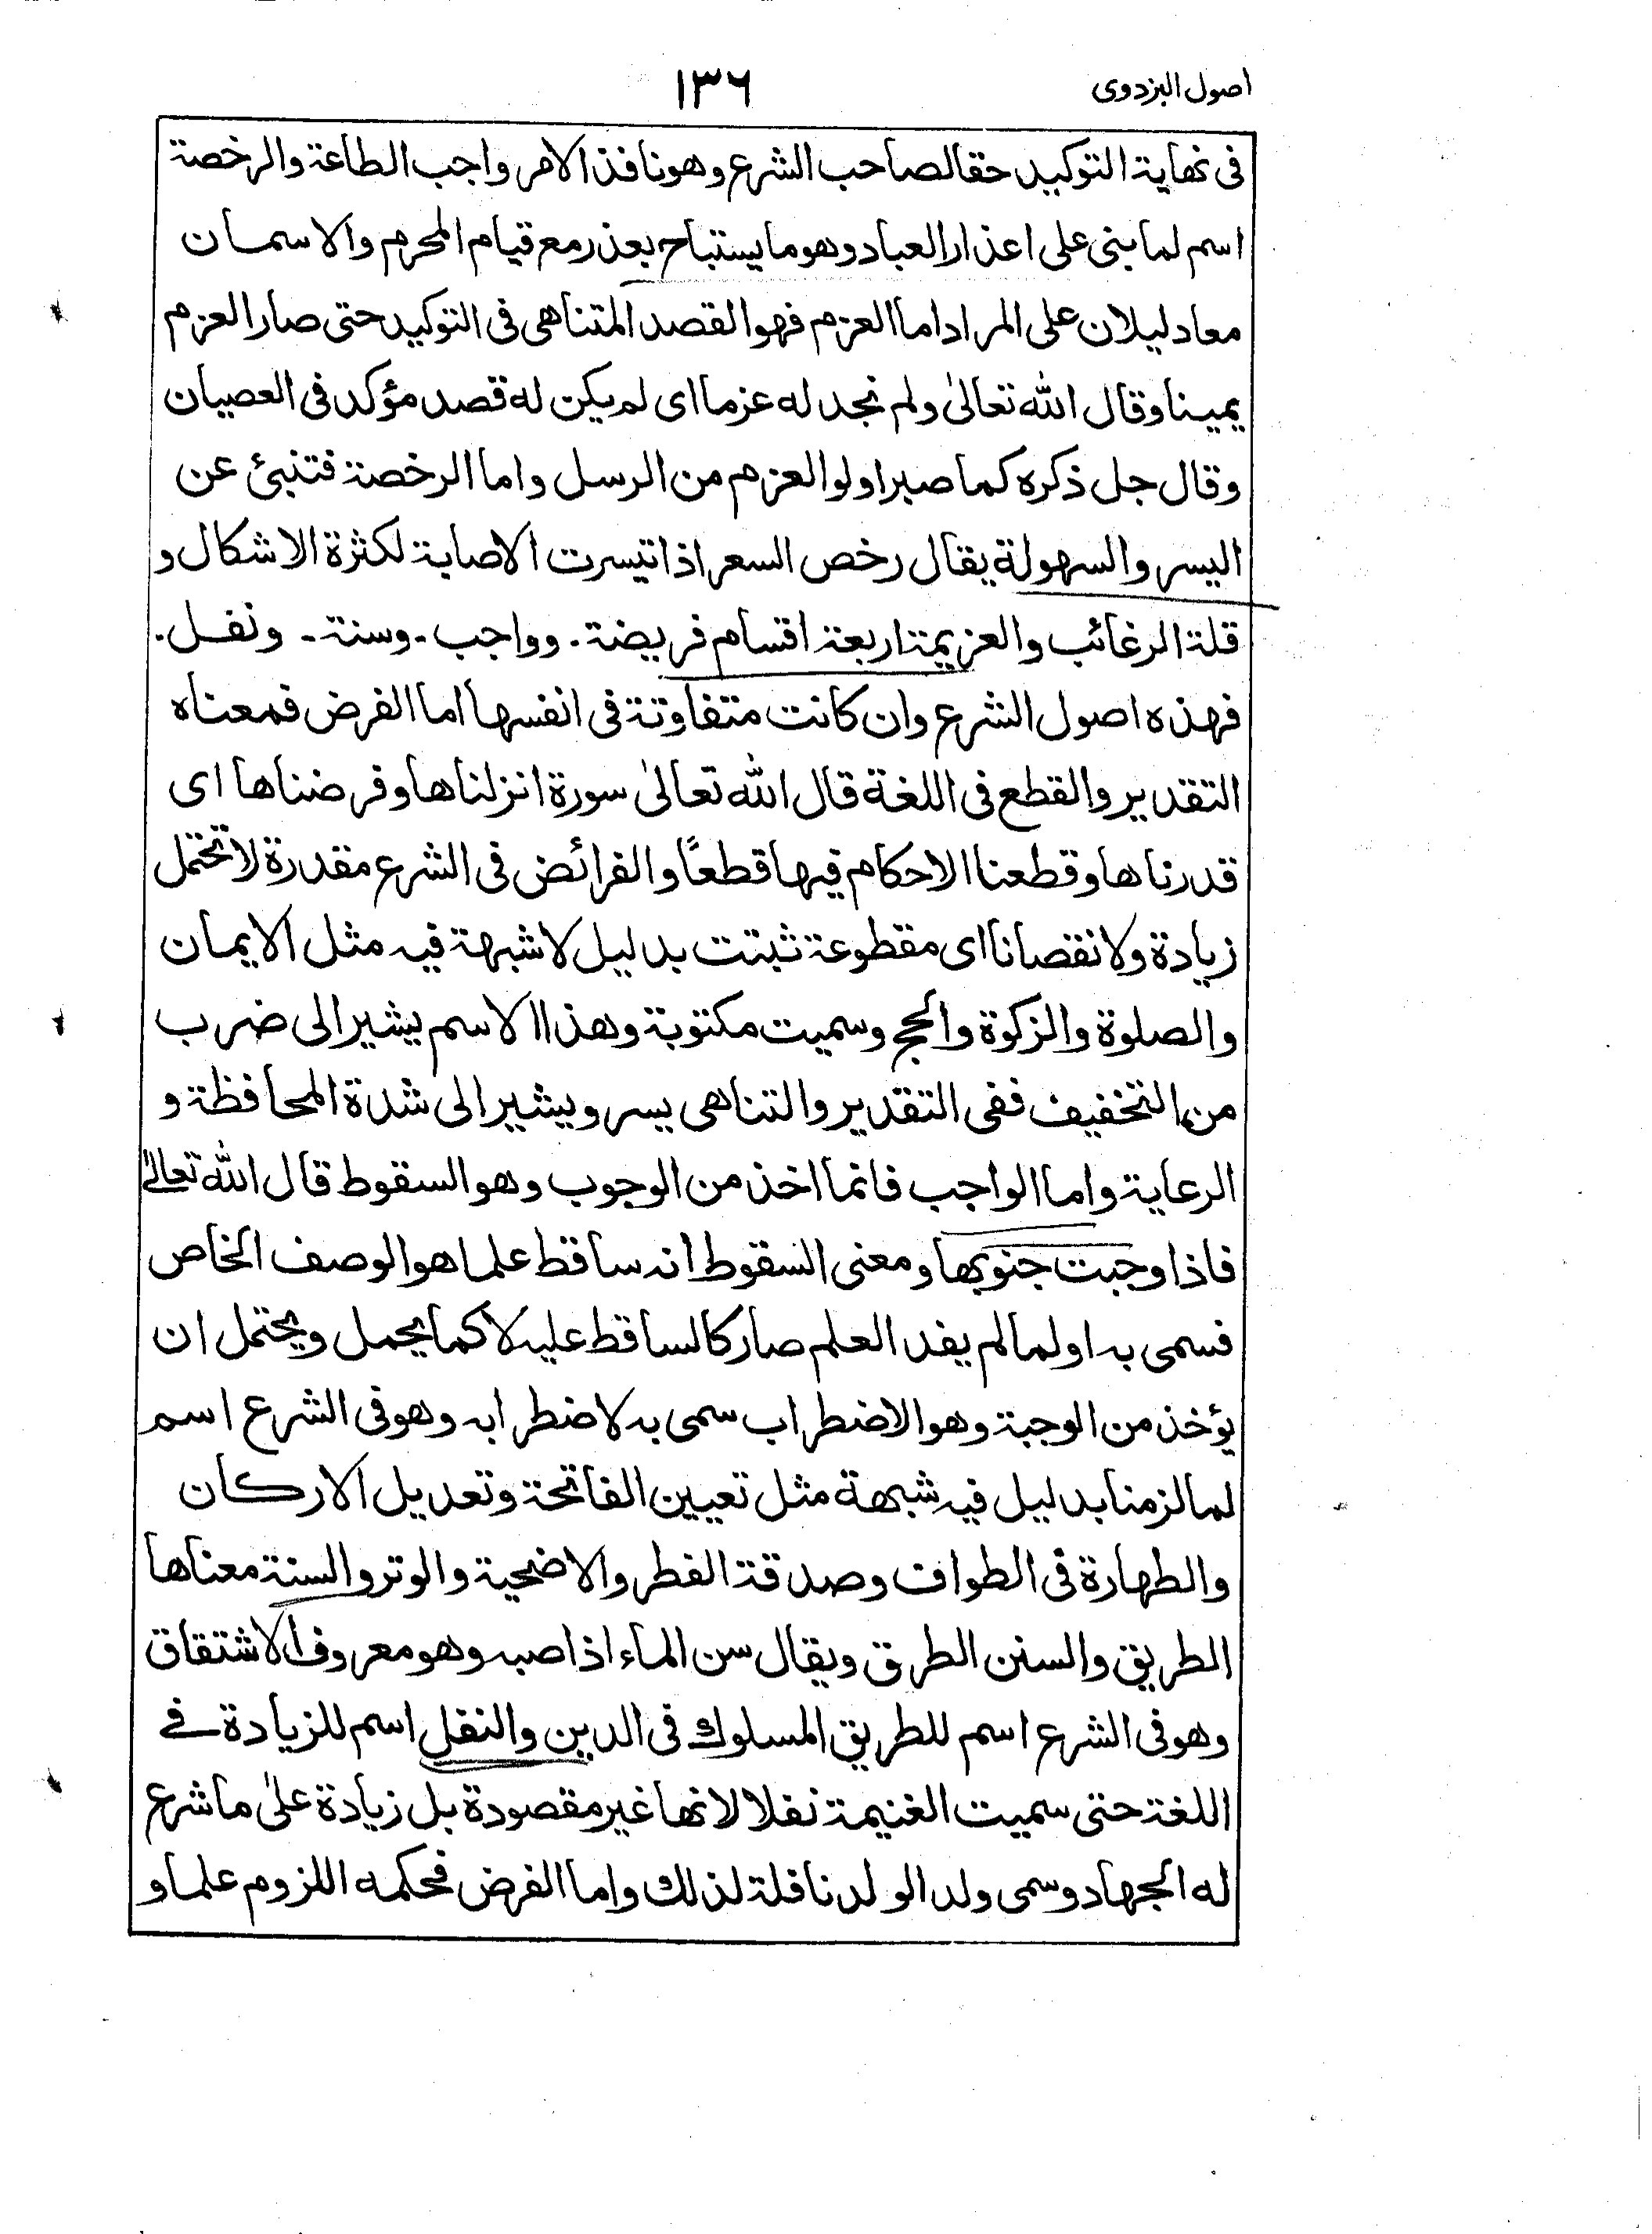 اصول البزدوى
١٣٦
فى نهاية التوكيد حقا لصاحب الشرع وهو نافذ الامر واجب الطاعة والرخصة
اسم لما بنى على اعذار العباد وهو ما يستباح بعذر مع قيام المحرم والاسمان
معا دليلان على المراد اما العزم فهو القصد المتناهى فى التوكيد حتى صار العزم
يمينا وقال الله تعالىٰ ولم نجد له عزما اى لم يكن له قصد مؤكد فى العصيان
وقال جل ذكره كما صبر اولوا العزم من الرسل واما الرخصة فتنبئ عن
اليسر والسهولة يقال رخص السعر اذا تيسرت الاصابة لكثرة الاشكال و
قلة الرغائب والعزيمة اربعة اقسام فريضة . وواجب - وسنة - ونفل .
فهذه اصول الشرع وان كانت متفاوتة فى انفسها اما الفرض فمعناه
التقدير والقطع فى اللغة قال الله تعالىٰ سورة انزلناها وفرضناها اى
قدرناها وقطعنا الاحكام فيها قطعًا والفرائض فى الشرع مقدرة لا تحتمل
زيادة ولا نقصانا اى مقطوعة ثبتت بدليل لا شبهة فيه مثل الايمان
والصلوة والزكوة والحج وسميت مكتوبة وهذا الاسم يشير الى ضرب
من التخفيف ففى التقدير والتناهى يسر ويشير الى شدة المحافظة و
الرعاية واما الواجب فانما اخذ من الوجوب وهو السقوط قال الله تعالىٰ
فاذا وجبت جنوبها ومعنى السقوط انه ساقط علما هو الوصف الخاص
فسمى به او لما لم يفد العلم صار كالساقط عليه لا كما يحمل ويحتمل ان
يؤخذ من الوجبة وهو الاضطراب سمى به لاضطرابه وهو فى الشرع اسم
لما لزمنا بدليل فيه شبهة مثل تعيين الفاتحة وتعديل الاركان
والطهارة فى الطواف وصدقة الفطر والاضحية والوتر والسنة معناها
الطريق والسنن الطرق ويقال سن الماء اذا صبه وهو معروف الاشتقاق
وهو فى الشرع اسم للطريق المسلوك فى الدين والنفل اسم للزيادة فے
اللغة حتى سميت الغنيمة نفلا لانها غير مقصودة بل زيادة علىٰ ما شرع
له الجهاد وسمى ولد الولد نافلة لذلك واما الفرض فحكمه اللزوم علما و